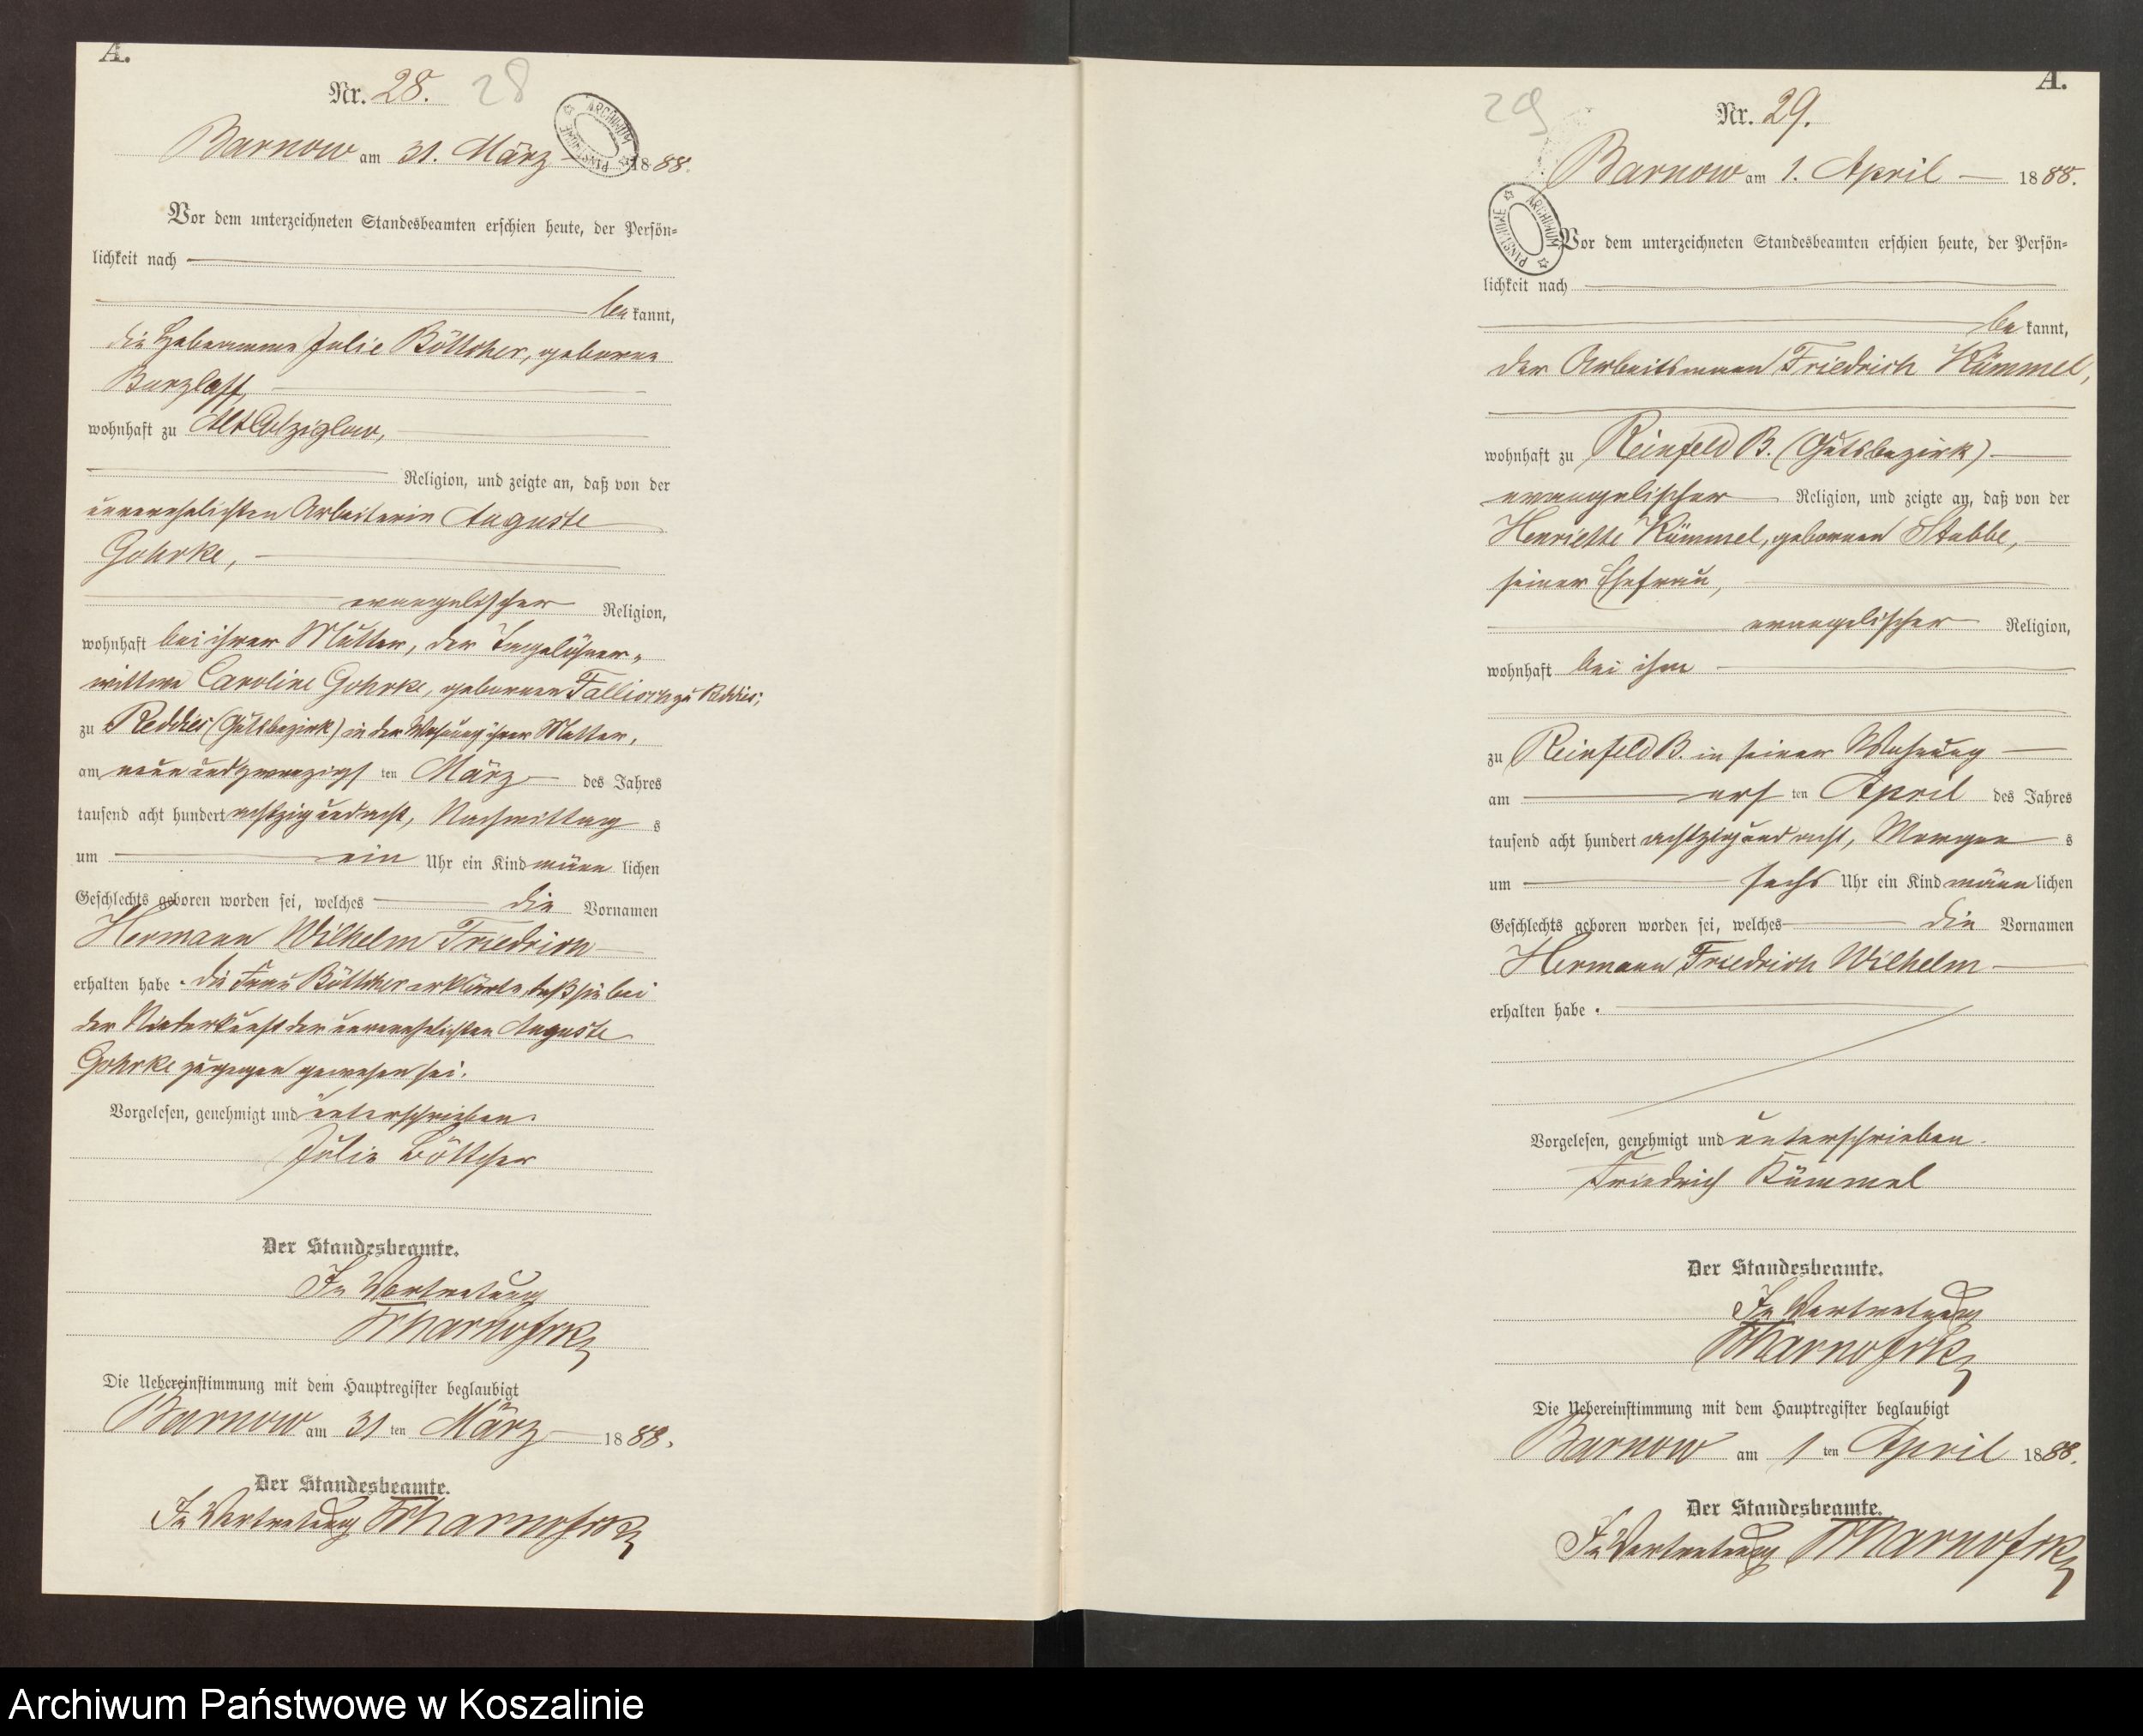 A.
Nr. 28. 28
ARCHIWUM PAŃSTWOWE
Barnow am 31. März 1888.
Vor dem unterzeichneten Standesbeamten erschien heute, der Persön-
lichkeit nach
bekannt,
die Hebeamme Julie Böttcher, geborene
Barzlaff,
wohnhaft zu Alt Colziglow,
Religion, und zeigte an, daß von der
unverehelichten Arbeiterin Auguste
Gohrke,
evangelischer Religion,
wohnhaft bei ihrer Mutter, der Tagelöhner-
wittwe Caroline Gohrke, geborenen zu Reddies,
zu Reddies (Gutsbezirk) in der Wohnung ihrer Mutter,
am neun und zwanzigsten März des Jahres
tausend acht hundert achtzig und acht, Nachmittags
um ein Uhr ein Kind männlichen
Geschlechts geboren worden sei, welches die Vornamen
Hermann Wilhelm Friedrich
erhalten habe. Die Frau Böttcher erklärte, daß sie bei
der Niederkunft der unverehelichten Auguste
Gohrke zugegen gewesen sei.
Vorgelesen, genehmigt und unterschrieben.
Julie Böttcher
Der Standesbeamte.
In Vertretung
Die Uebereinstimmung mit dem Hauptregister beglaubigt
Barnow am 31ten März 1888.
Der Standesbeamte.
In Vertretung
A.
29 Nr. 29.
Barnow am 1. April 1888.
ARCHIWUM PAŃSTWOWE
Vor dem unterzeichneten Standesbeamten erschien heute, der Persön-
lichkeit nach
bekannt,
der Arbeitsmann Friedrich Kümmel,
wohnhaft zu Reinfeld B. (Gutsbezirk)
evangelischer Religion, und zeigte an, daß von der
Henriette Kümmel, geborenen Stubbe,
seiner Ehefrau,
evangelischer Religion,
wohnhaft bei ihm
zu Reinfeld B. in seiner Wohnung
am ersten April des Jahres
tausend acht hundert achtzig und acht, Morgens
um sechs Uhr ein Kind männlichen
Geschlechts geboren worden sei, welches die Vornamen
Hermann Friedrich Wilhelm
erhalten habe.
Vorgelesen, genehmigt und unterschrieben.
Friedrich Kümmel
Der Standesbeamte.
In Vertretung
Die Uebereinstimmung mit dem Hauptregister beglaubigt
Barnow am 1ten April 1888.
Der Standesbeamte.
In Vertretung
Archiwum Państwowe w Koszalinie